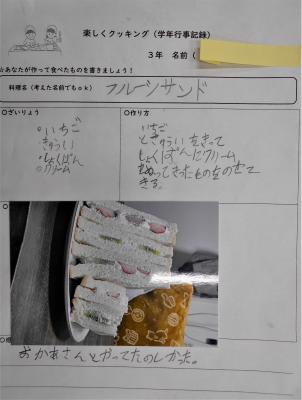 楽しくクッキング（学年行事記録）
３年　名前（
☆あなたが作って食べたものを書きましょう！
料理名（考えた名前でもｏｋ）
フルーツサンド
○ざいりょう
○いちご
○きゅうい
○しょくぱん
○クリーム
○作り方
いちご
ときゅういをきって
しょくぱんにクリーム
ぬってきったものをのせて
きる。
おかあさんとやってたのしかった。